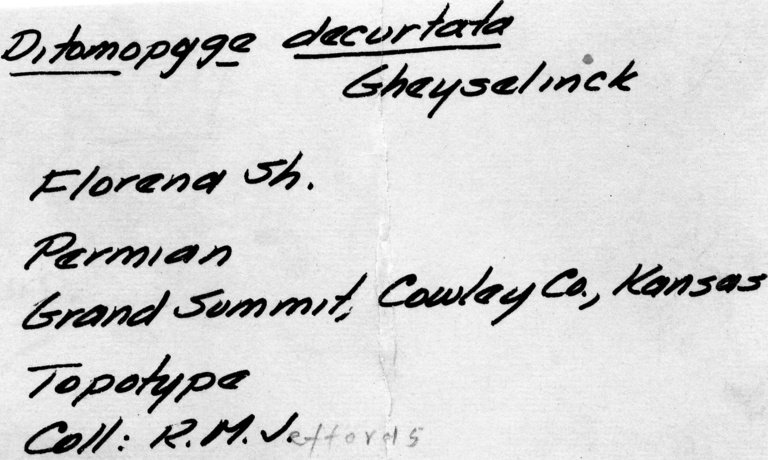 Ditomopyge decurtata
Gheyselinck
Florena Sh.
Permian
Grand Summit, Cowley Co., Kansas
Topotype
Coll: R.M. Jeffords